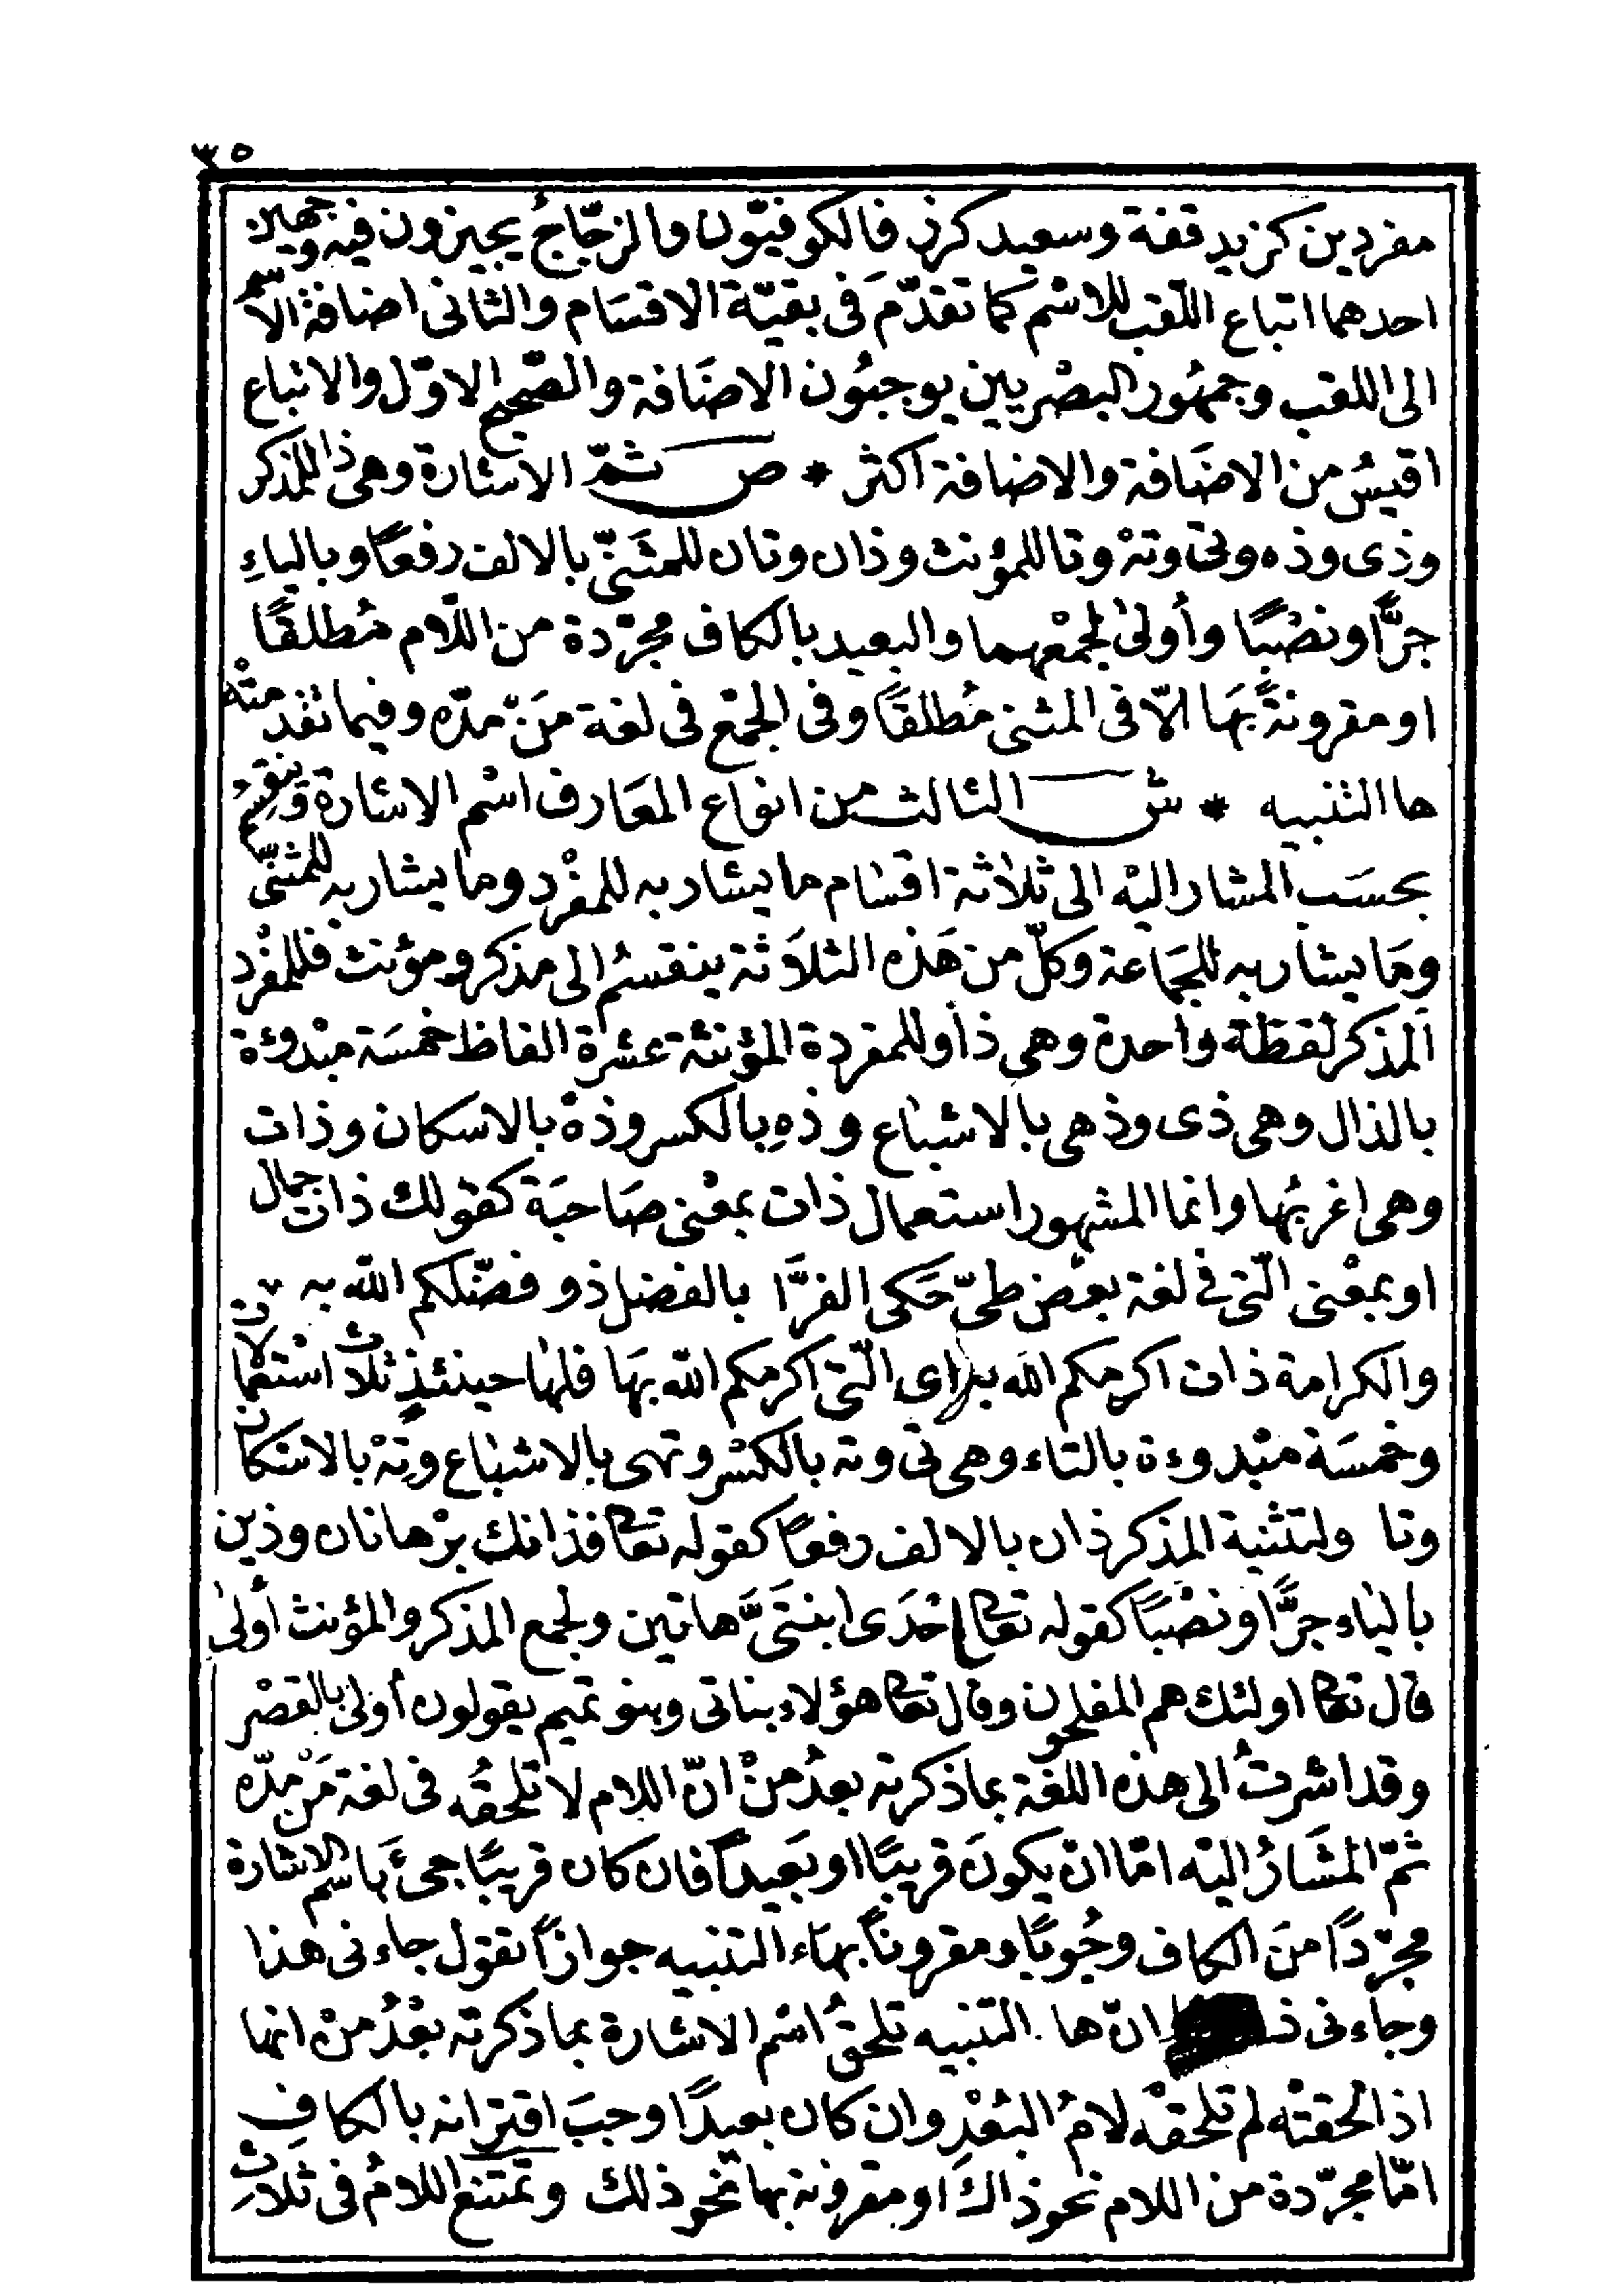 ٣٥
مفردين كزيد قفة وسعيد كرز فالكوفيّون والزجّاجُ يجيزون فيه وجهين
احدهما اتباع اللّقب للاسْم كما تقدّمَ فى بقيّة الاقسَام والثانى اضافة الاسم
الى اللقب وجمهُور البصْريين يوجبُون الاضَافة والصّحيح الاوّل والاتباع
اقيسُ من الاضَافة والاضافة اكثر * ص ثمّ الاشارة وهى ذا للمذكر
وذى وذه وتى وتهْ وتا للمؤنث وذان وتان للمثنّى بالالف رفعًا وبالياءِ
جرًّا ونصْبًا وأولىٰ لجمْعهما والبعيد بالكاف مجرّدة من اللّام مُطلقًا
او مقرونةً بهَا الّا فى المثنى مُطلقًا وفى الجمْع فى لغة مَنْ مدّه وفيما تقدمتْه
ها التنبيه * ش الثالث من انواع المعَارف اسْم الاشارة وينقسِمُ
بحسَب المشار اليْه الى ثلاثة اقسَام ما يشار به للمفْرد وما يشار به للمثنّى
ومَا يشار به للجمَاعة وكلّ من هَذه الثلاَثة ينقسمُ الى مذكر ومؤنث فللمفْرد
المذكر لفظة واحدة وهى ذا وللمفردة المؤنثة عشرة الفاظ خمسَة مبْدوءة
بالذال وهى ذى وذهى بالاشبَاع وذهِ بالكسر وذهْ بالاسكان وذات
وهى اغربُها وانما المشهور استعمال ذات بمعْنى صَاحبَة كقولك ذات جمال
او بمعْنى الّتى فى لغة بعْض طىّ حَكى الفرَّا بالفضل ذو فضّلكم الله به
والكرامة ذات اكرمكم الله به اى الّتى اكرمكم الله بهَا فلها حينئذٍ ثلاث استعْمالات
وخمسَة مبْدوءة بالتاء وهى تى وته بالكسْر وتهى بالاشبَاع وتهْ بالاسْكان
وتا ولتثنية المذكر ذان بالالف رفعًا كقوله تعالى فذانك برْهانان وذين
بالياء جرًّا ونصْبًا كقوله تعالى احْدَى ابنتَىَّ هاتين ولجمع المذكر والمؤنث أولىٰ
قال تعالى اولئك هم المفلحون وقال تعالى هؤلاء بناتى وبنو تميم يقولون أولىٰ بالقصْر
وقد اشرتُ الى هذه اللغة بما ذكرته بعدُ منْ انّ اللام لا تلحقُه فى لغة مَنْ مدّه
ثمّ المشَارُ اليْه امّا انْ يكونَ قريبًا او بَعيدًا فان كان قريبًا جىءَ باسم الاشارة
مجرّدًا منَ الكاف وجُوبًا ومقرونًا بهَاء التنبيه جوازًا تقول جاءنى هذا
وجاءنى ذ انّ ها التنبيه تلحقُ اسْم الاشارة بما ذكرته بعْدُ منْ انها
اذا لحقتْه لم تلحقْه لامُ البُعْدِ وان كان بعيدًا وجبَ اقترانه بالكافِ
امّا مجرّدة من اللام نحو ذاكَ او مقرونة بها نحو ذلك وتمتنع اللامُ فى ثلاثِ